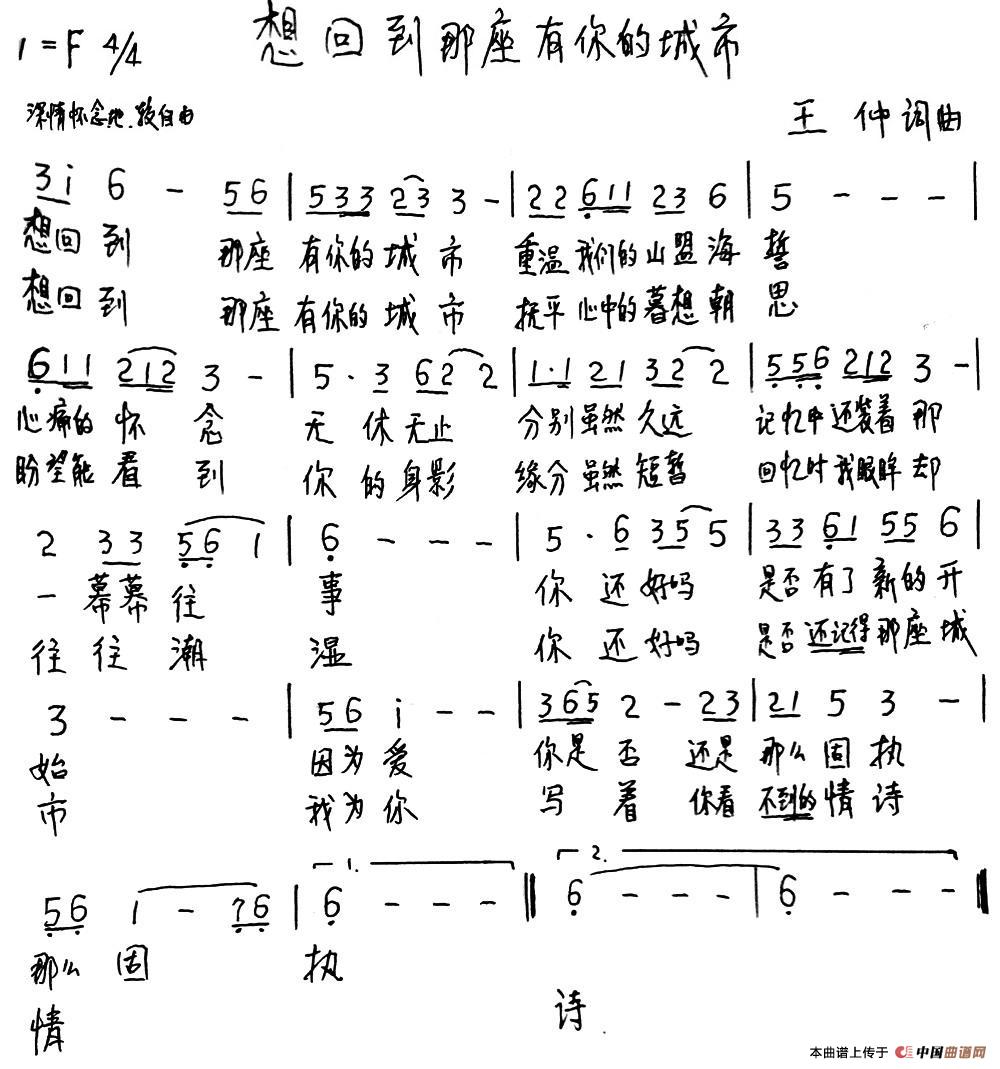 想回到那座有你的城市
1=F 4/4
深情怀念地、较自由
王仲词曲
3i 6 - 56 | 533 23 3 - | 22 611 23 6 | 5 - - - |
想回到 那座 有你的城市 重温我们的山盟海誓
想回到 那座 有你的城市 抚平心中的暮想朝思
611 212 3 - | 5 · 3 62 2 | 1·1 21 32 2 | 556 212 3 - |
心痛的怀念 无休无止 分别虽然久远 记忆中还装着那
盼望能看到 你的身影 缘分虽然短暂 回忆时我眼眸却
2 33 56 1 | 6 - - - | 5 · 6 35 5 | 33 61 55 6 |
一幕幕往事 你还好吗 是否有了新的开
往往潮湿 你还好吗 是否还记得那座城
3 - - - | 56 i - - | 365 2 - 23 | 21 5 3 - |
始 因为爱 你是否 还是那么固执
市 我为你 写着 你看不到的情诗
1. 2.
56 1 - 76 | 6 - - - ‖ 6 - - - | 6 - - - ‖
那么固执
情 诗
本曲谱上传于 中国曲谱网